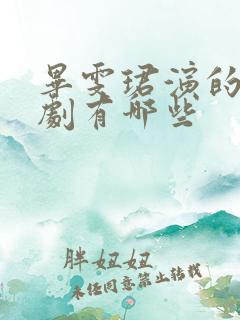 畢雯珺演的
劇有哪些
胖妞妞
未经同意禁止转载